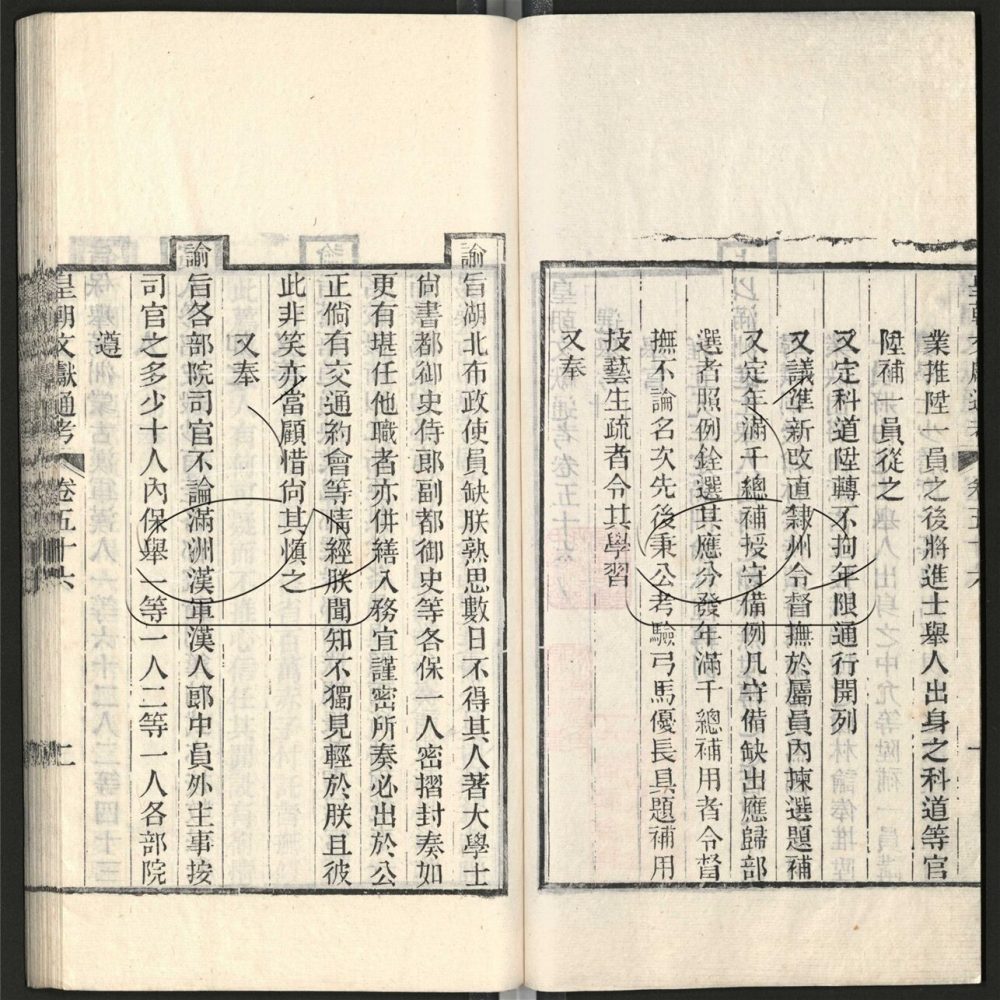 業推陞一員之後將進士舉人出身之科道等官
陞補一員從之
又定科道陞轉不拘年限通行開列
又議準新改直隸州令督撫於屬員內揀選題補
又定年滿千總補授守備例凡守備缺出應歸部
選者照例銓選其應分發年滿千總補用者令督
撫不論名次先後秉公考驗弓馬優長具題補用
技藝生疏者令其學習
又奉
諭旨湖北布政使員缺朕熟思數日不得其人著大學士
尙書都御史侍郎副都御史等各保一人密摺封奏如
更有堪任他職者亦倂繕入務宜謹密所奏必出於公
正倘有交通約會等情經朕聞知不獨見輕於朕且彼
此非笑亦當顧惜尙其慎之
又奉
諭旨各部院司官不論滿洲漢軍漢人郎中員外主事按
司官之多少十人內保舉一等一人二等一人各部院
遵
皇朝文獻通考 卷五十六 二